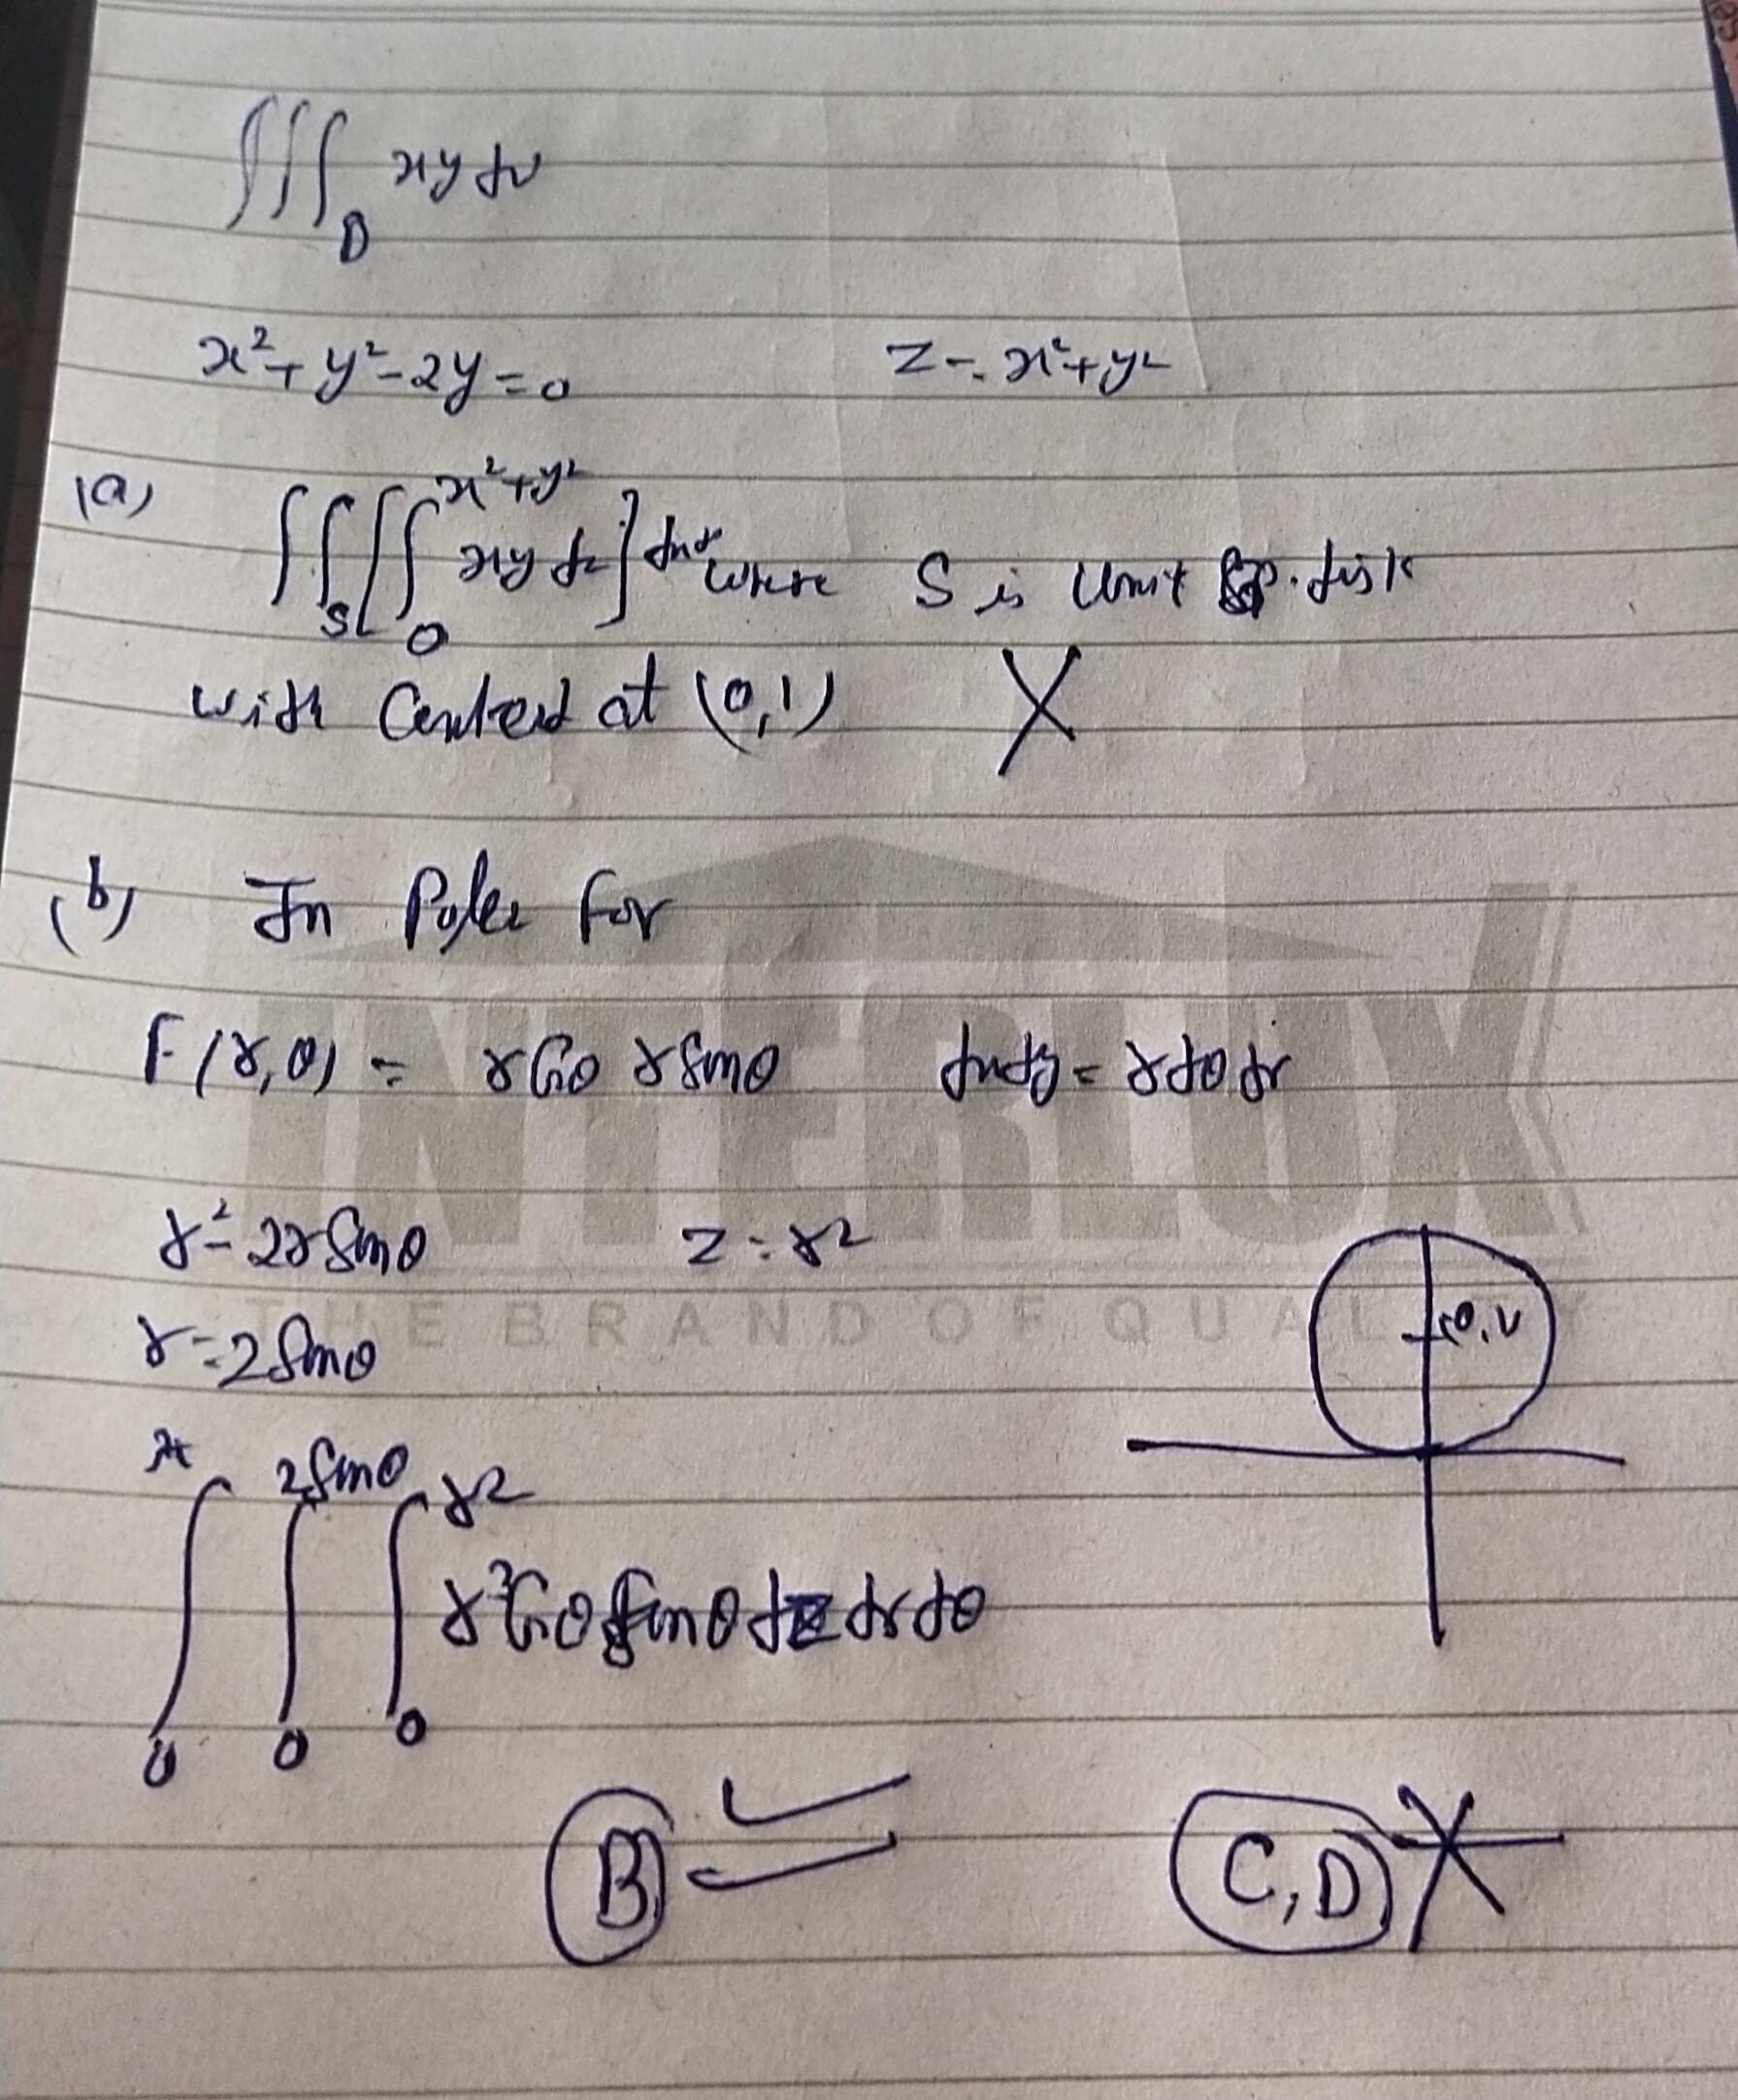 ∫∫∫_D xy dv
x²+y²-2y=0 z = x²+y²
(a) ∫∫_S [∫_0^{x²+y²} xy dz] where S is Unit disk
with Centered at (0,1) X
(b) In Polar For
INTERLUX
F(r,θ) = r Cosθ r Sinθ dxdy = r dθ dr
r² = 2r Sinθ z = r²
THE BRAND OF QUALITY
r = 2 Sinθ
∫_0^π ∫_0^{2Sinθ} ∫_0^{r²} r³ Cosθ Sinθ dz dr dθ
B ✓ C, D X